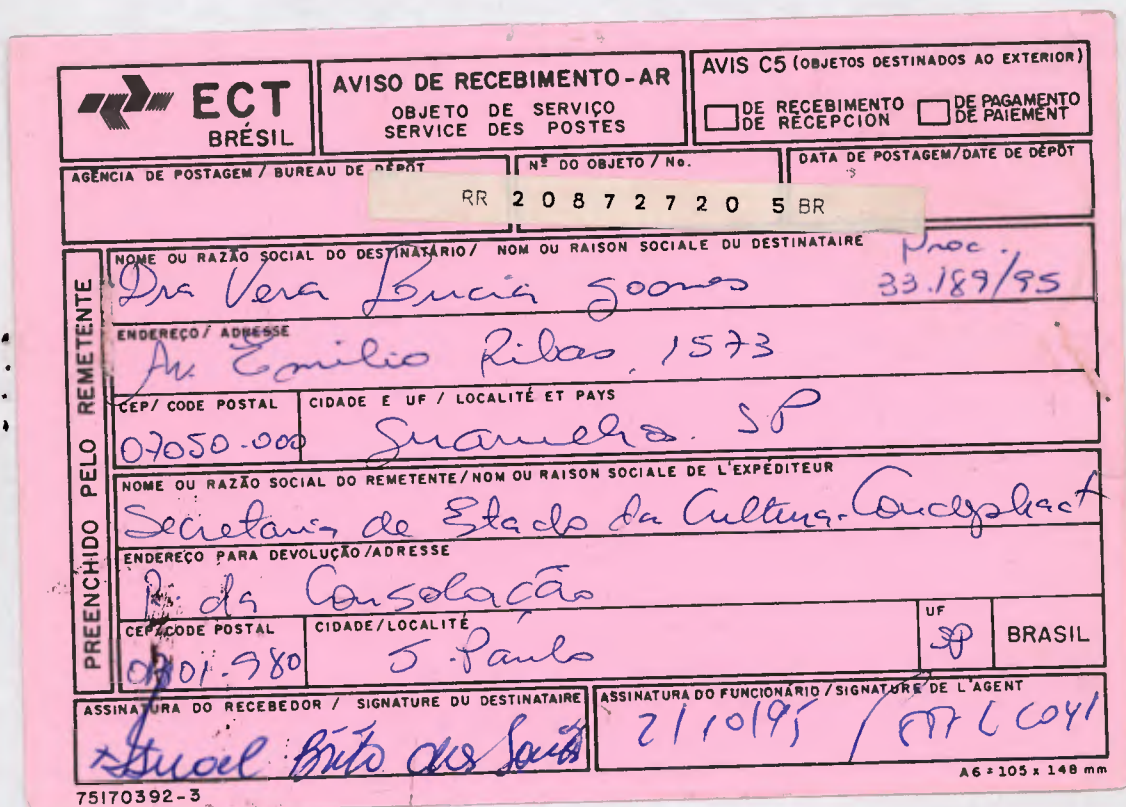 ECT
BRÉSIL
AVISO DE RECEBIMENTO-AR
OBJETO DE SERVIÇO
SERVICE DES POSTES
AVIS C5 (OBJETOS DESTINADOS AO EXTERIOR)
DE RECEBIMENTO
DE RECEPCION
DE PAGAMENTO
DE PAIEMENT
AGENCIA DE POSTAGEM / BUREAU DE DÉPÔT
Nº DO OBJETO / No.
DATA DE POSTAGEM/DATE DE DÉPÔT
RR 2 0 8 7 2 7 2 0 5 BR
PREENCHIDO PELO REMETENTE
NOME OU RAZÃO SOCIAL DO DESTINATÁRIO / NOM OU RAISON SOCIALE DU DESTINATAIRE
Proc.
33.189/95
Dra Vera Lucia Gomes
ENDEREÇO / ADRESSE
Av. Emilio Ribas, 1573
CEP/ CODE POSTAL
CIDADE E UF / LOCALITÉ ET PAYS
07050-000
Guarulhos. SP
NOME OU RAZÃO SOCIAL DO REMETENTE/NOM OU RAISON SOCIALE DE L'EXPÉDITEUR
Secretaria de Estado da Cultura-Condephaat
ENDEREÇO PARA DEVOLUÇÃO/ADRESSE
R. da Consolação
CEP/CODE POSTAL
CIDADE/LOCALITÉ
UF
-980
S. Paulo
SP
BRASIL
ASSINATURA DO RECEBEDOR / SIGNATURE DU DESTINATAIRE
ASSINATURA DO FUNCIONÁRIO / SIGNATURE DE L'AGENT
Brito dos Santos
2/10/95
A6 = 105 x 148 mm
75170392-3